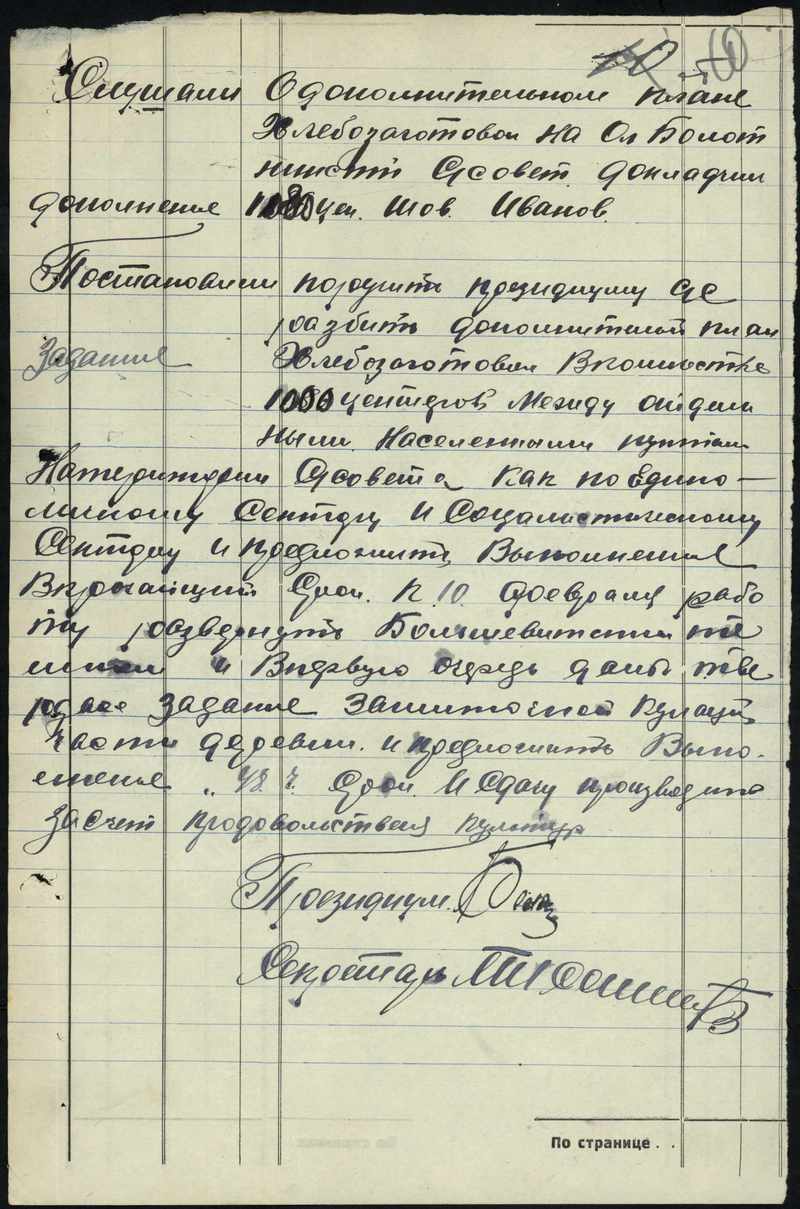 10 10
Слушали О дополнительном плане
Хлебозаготовок на Ол Болот
нинский с/совет докладчик
дополнение 1000 цен. тов. Иванов.
Постановили поручить президиуму с/с
разбить дополнительный план
Задание Хлебозаготовок В количестве
1000 центеров Между отдель
ными Населенными пунктами
На территории с/совета Как по Едино-
личному Сектору И Социалистическому
Сектору и предложить Выполнение
В кротчайший Срок. К 10 февраля рабо
ту развернуть Большевитскими те
мпами и В первую очередь дать тве
рдое Задание Зажиточной Кулацк
части деревни. и предложить Выпо-
лнение Срок. И Сдачу производить
За счет продовольственых Культур
Президиум.
Секретарь
По странице . .